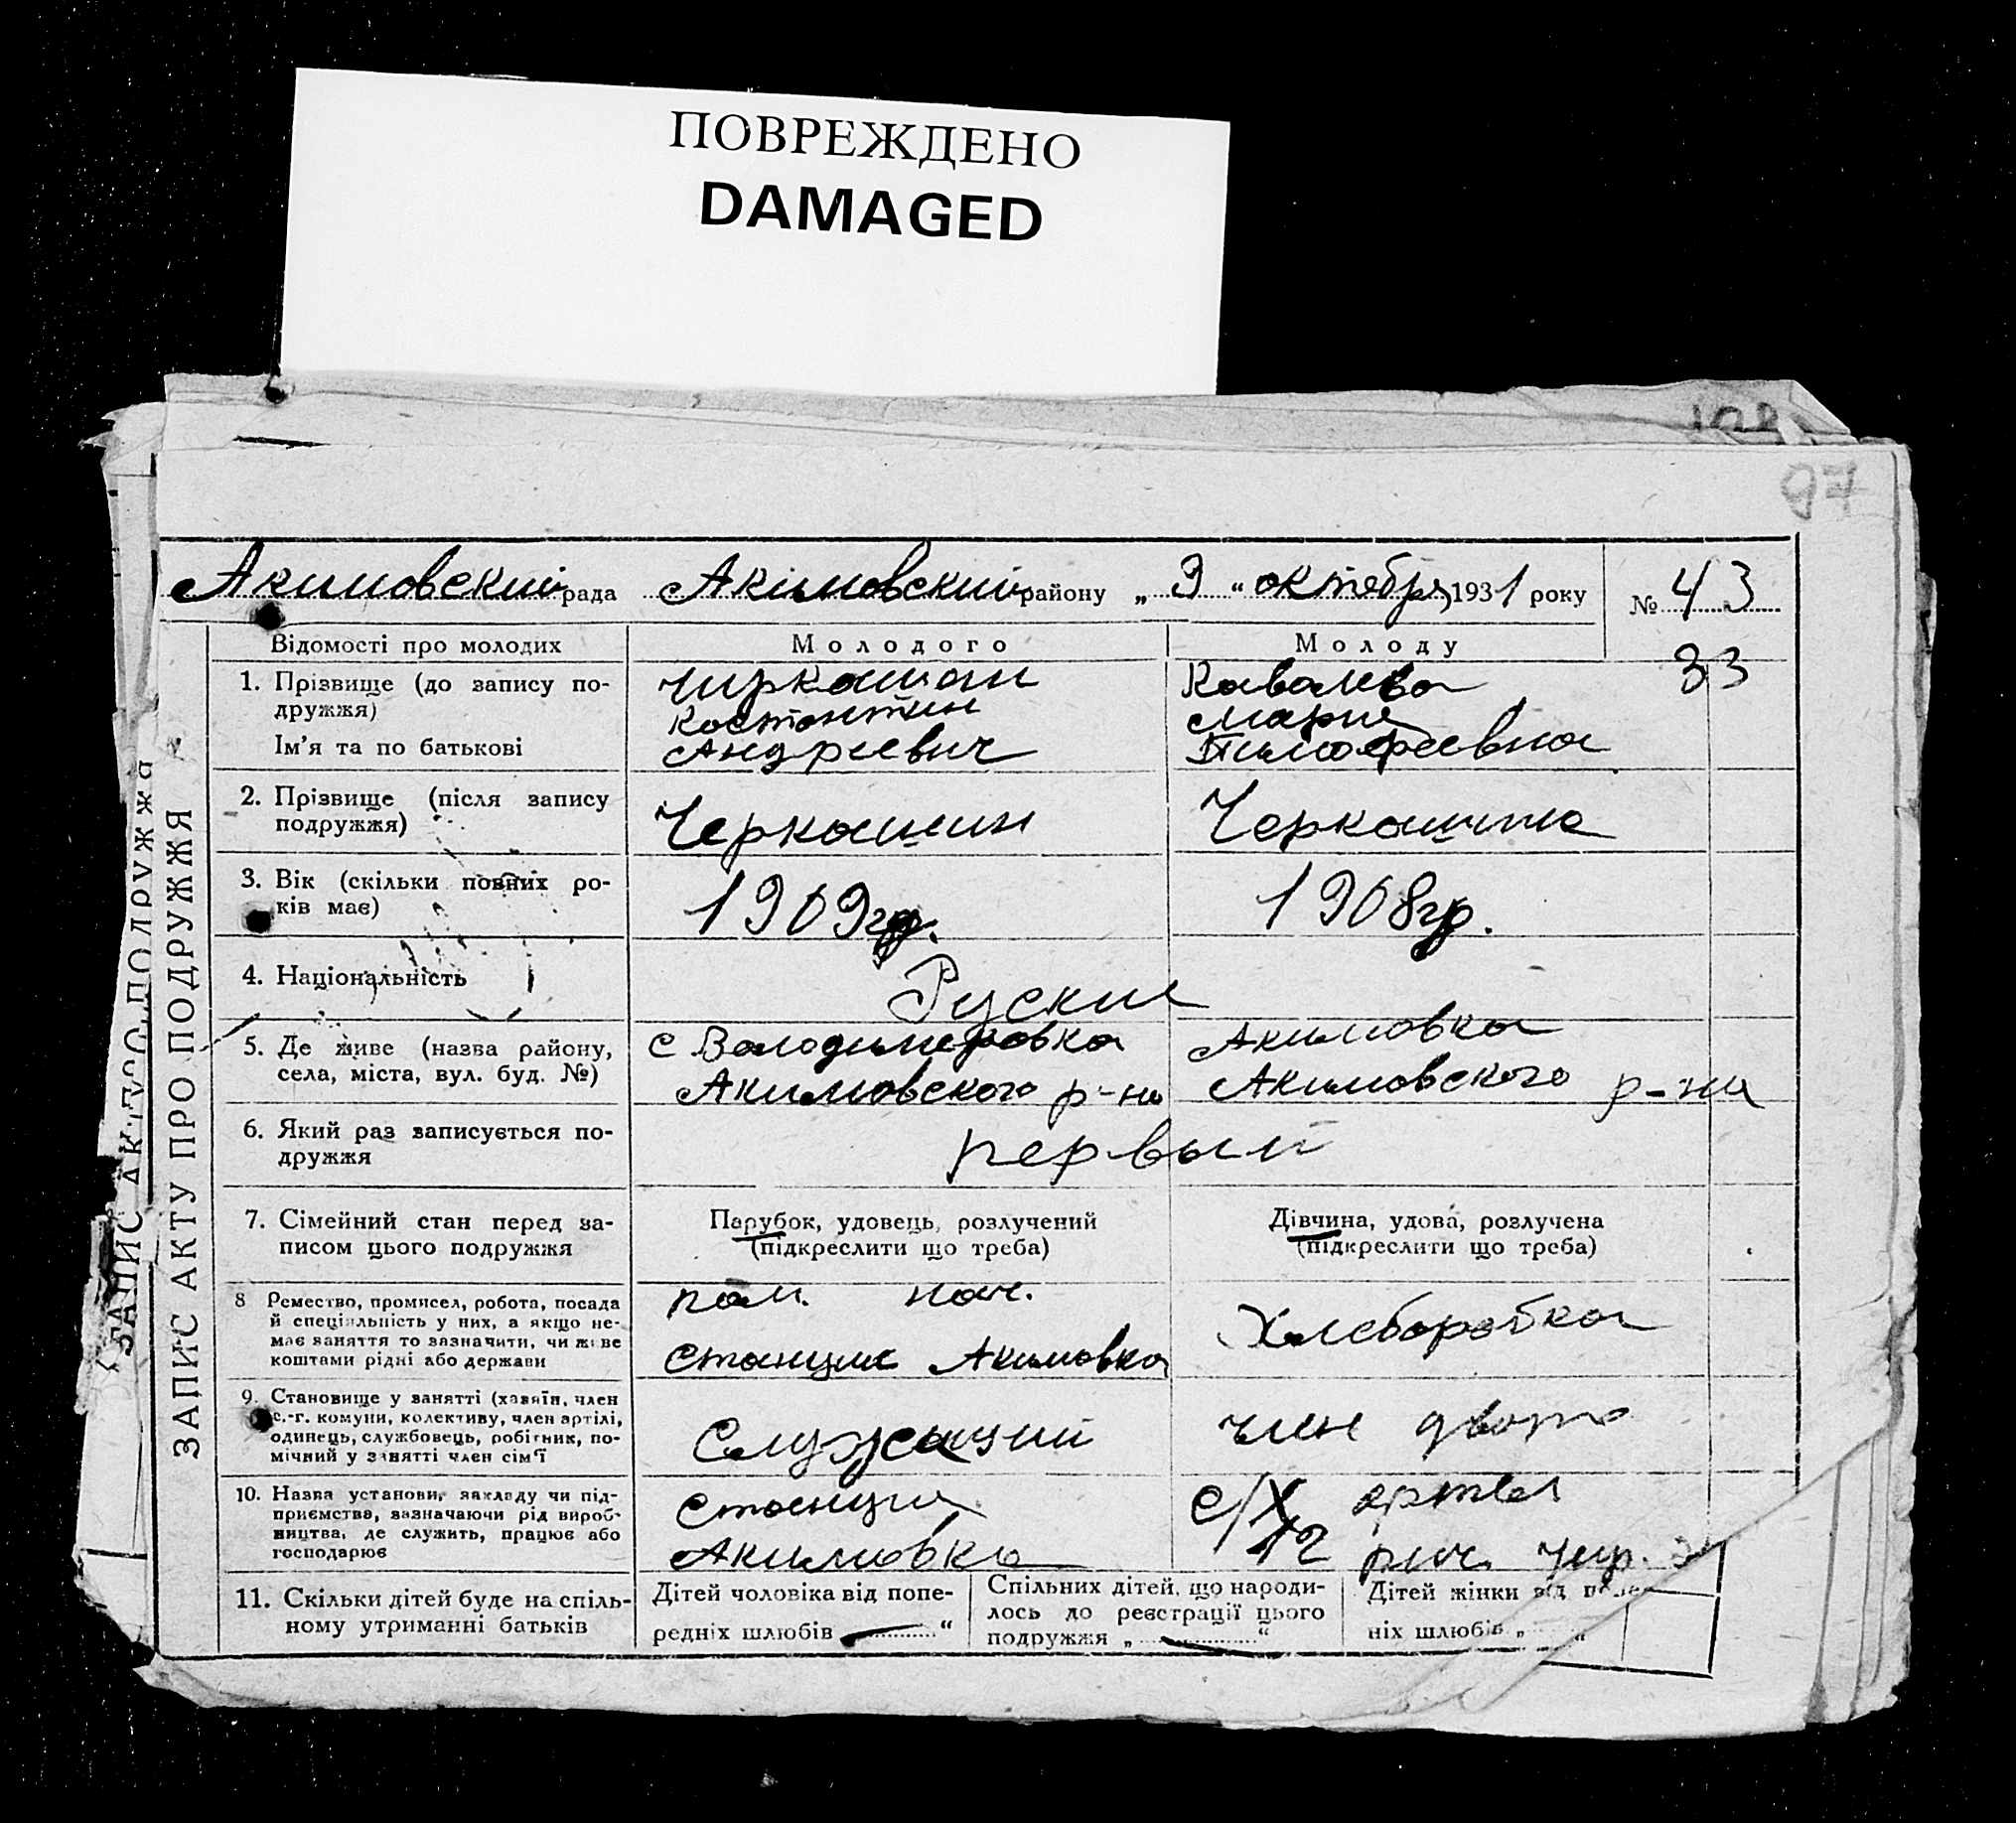 ПОВРЕЖДЕНО
DAMAGED
97
Акимовский рада Акимовский району „ 9 “ октября 1931 року № 43
33
Відомості про молодих
Молодого
Молоду
1. Прізвище (до запису по-
дружжя)
Ім'я та по батькові
Чиркашин
Костантин
Андреевич
Кавалева
Мария
Тимофеевна
2. Прізвище (після запису
подружжя)
Черкашин
Черкашина
3. Вік (скільки повних ро-
ків має)
1909 гр.
1908 гр.
4. Національність
Руские
5. Де живе (назва району,
села, міста, вул. буд. №)
с Володимеровка
Акимовского р-на
Акимовка
Акимовского р-на
6. Який раз записується по-
дружжя
первый
7. Сімейний стан перед за-
писом цього подружжя
Парубок, удовець, розлучений
(підкреслити що треба)
Дівчина, удова, розлучена
(підкреслити що треба)
8 Ремество, промисел, робота, посада
й спеціяльність у них, а якщо не-
має заняття то зазначити, чи живе
коштами рідні або держави
пом. нач.
Станции Акимовка
Хлеборобка
9. Становище у занятті (хазяїн, член
с.-г. комуни, колективу, член артілі,
одинець, службовець, робітник, по-
мічний у занятті член сім'ї
Служащий
член двора
10. Назва установи, закладу чи під-
приємства, зазначаючи рід вироб-
ництва, де служить, працює або
господарює
Станция
Акимовка
с/х артел
11. Скільки дітей буде на спіль-
ному утриманні батьків
Дітей чоловіка від попе-
редніх шлюбів “
Спільних дітей, що народи-
лось до реєстрації цього
подружжя „ “
Дітей жінки від попе
ніх шлюбів „ “
ЗАПИС АКТУ ПРО ПОДРУЖЖЯ